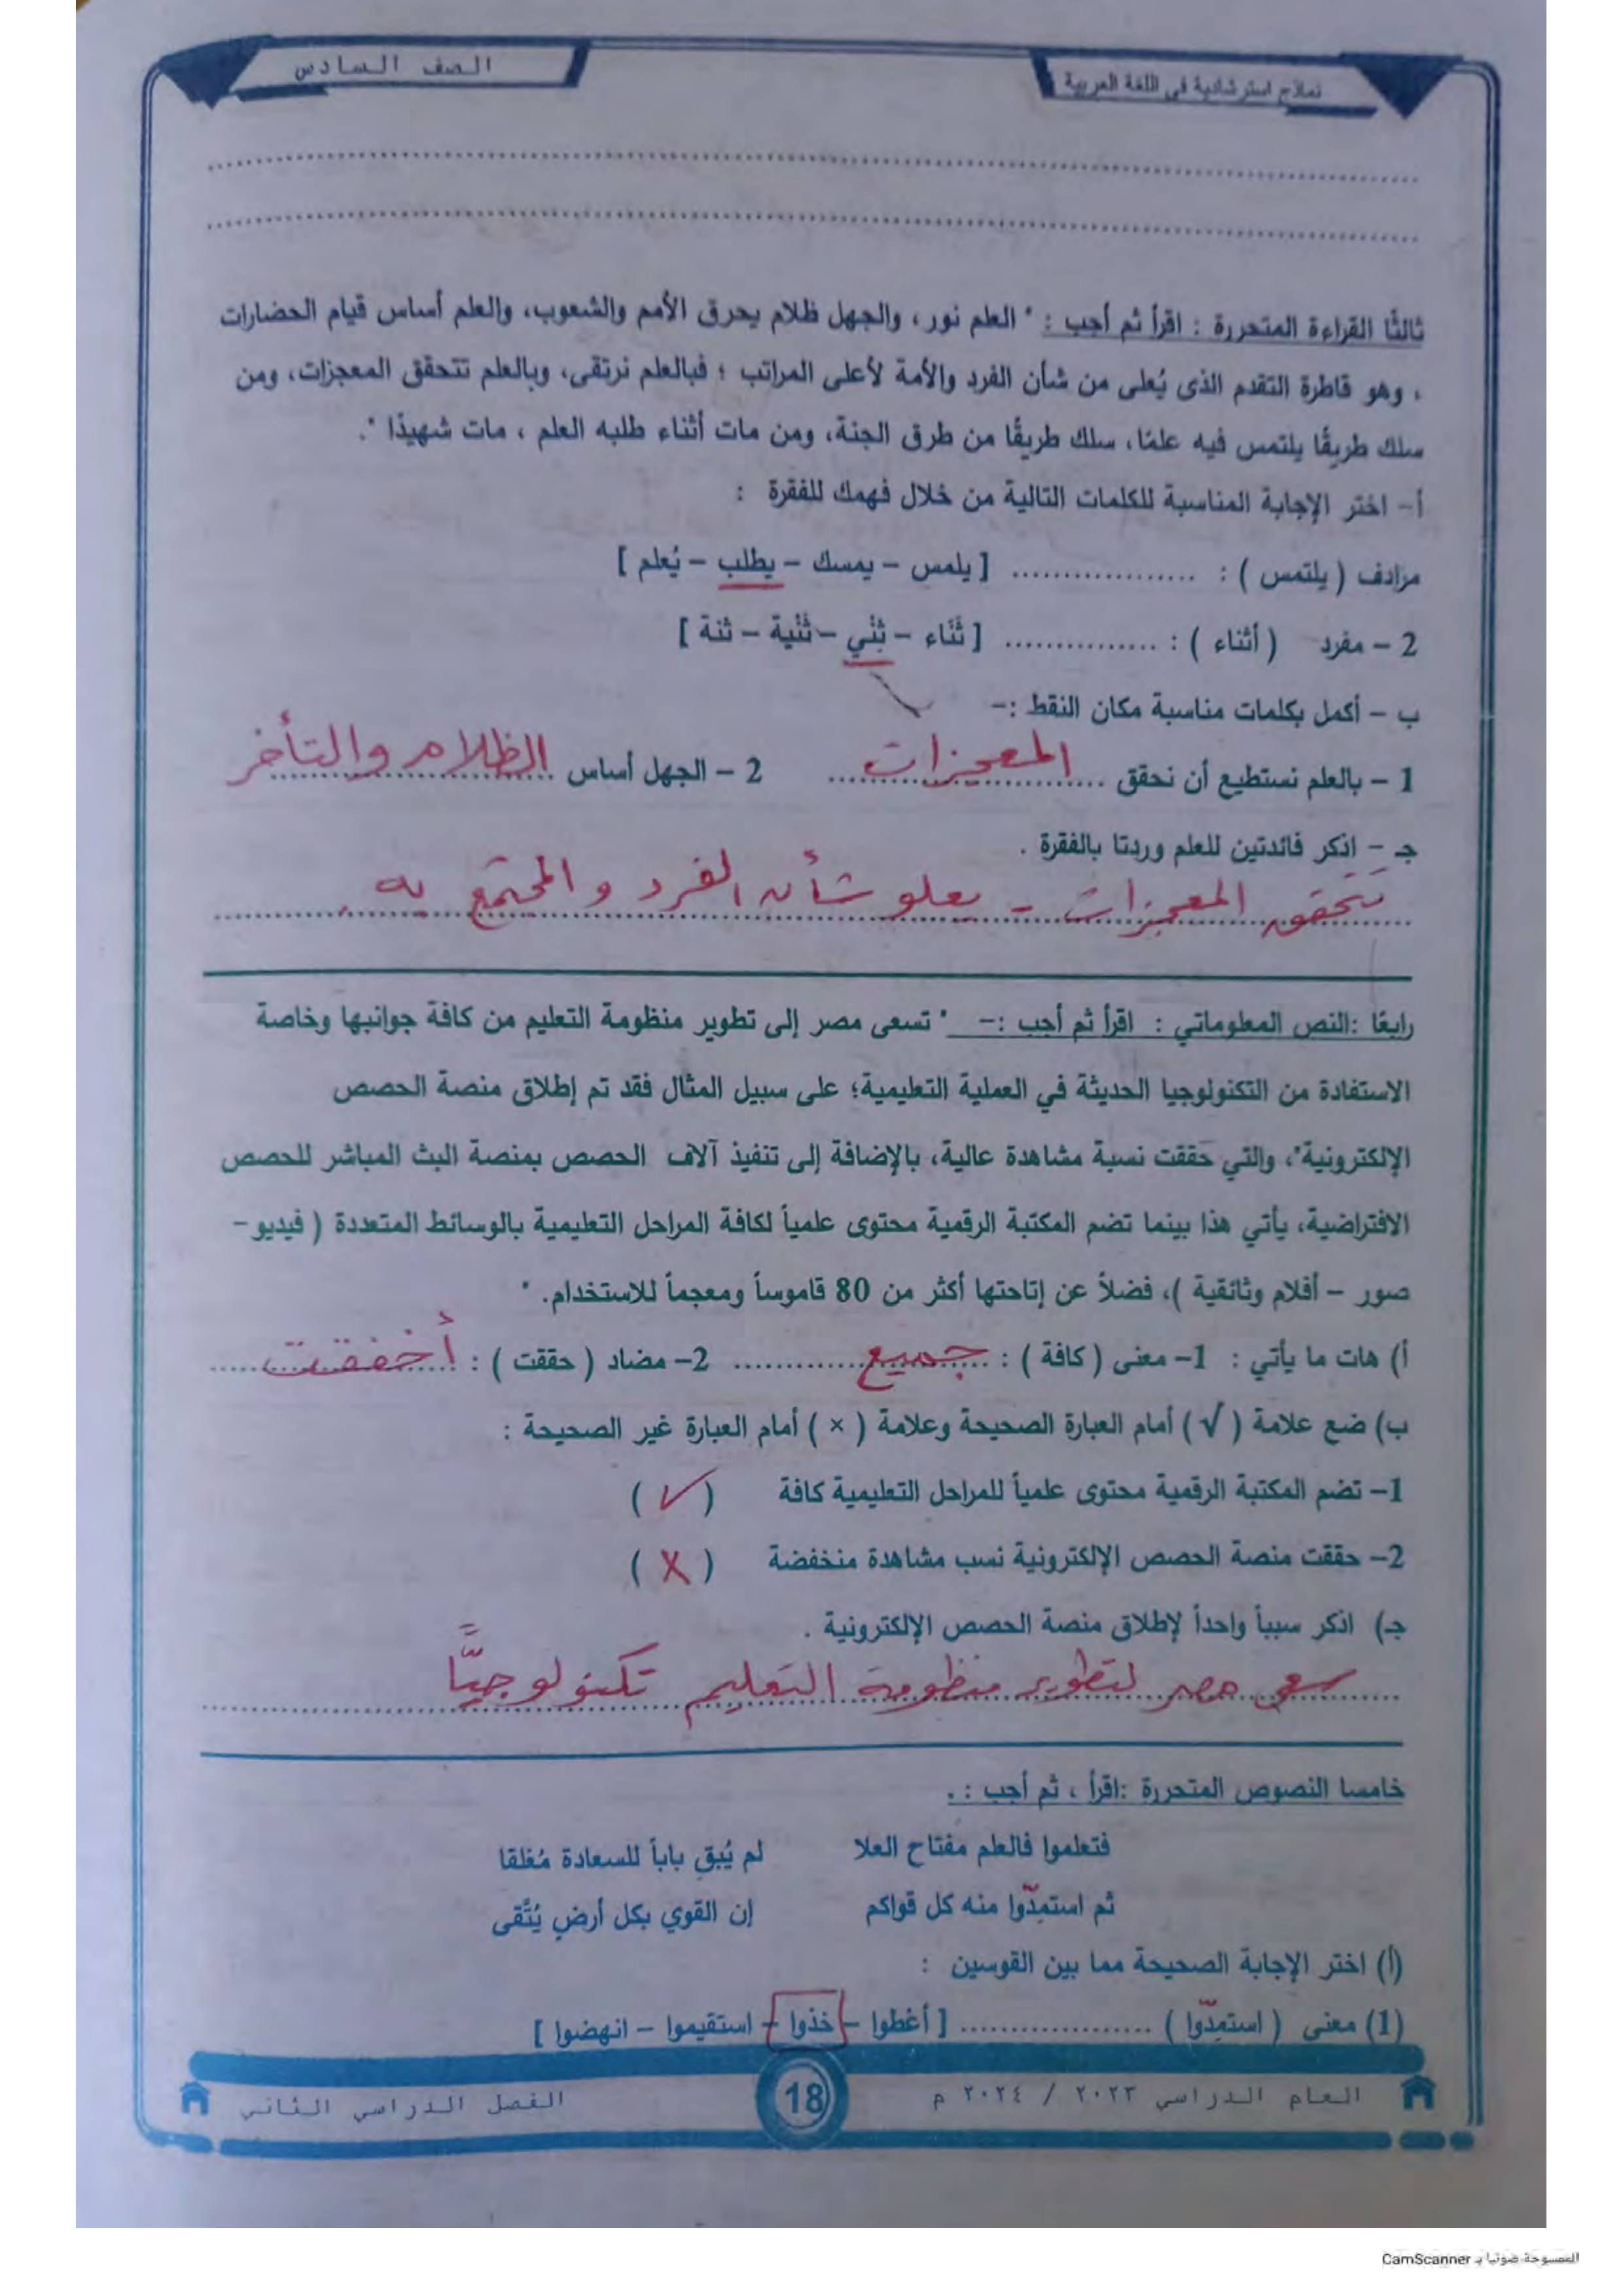 نماذج استرشادية في اللغة العربية
الصف السادس
ثالثًا القراءة المتحررة : اقرأ ثم أجب : " العلم نور، والجهل ظلام يحرق الأمم والشعوب، والعلم أساس قيام الحضارات
، وهو قاطرة التقدم الذى يُعلى من شأن الفرد والأمة لأعلى المراتب ؛ فبالعلم نرتقى، وبالعلم تتحقق المعجزات، ومن
سلك طريقًا يلتمس فيه علمًا، سلك طريقًا من طرق الجنة، ومن مات أثناء طلبه العلم ، مات شهيدًا ".
أ- اختر الإجابة المناسبة للكلمات التالية من خلال فهمك للفقرة :
مرادف ( يلتمس ) : .................. [ يلمس – يمسك – يطلب – يُعلم ]
2 – مفرد ( أثناء ) : ............... [ ثَنَاء – ثِنْي – ثَنْية – ثنة ]
ب – أكمل بكلمات مناسبة مكان النقط :-
1 – بالعلم نستطيع أن نحقق المعجزات 2 – الجهل أساس الظلام والتأخر
جـ - اذكر فائدتين للعلم وردتا بالفقرة .
تتحقق المعجزات - يعلو شأن الفرد والمجتمع به .
رابعًا :النص المعلوماتي : اقرأ ثم أجب :- " تسعى مصر إلى تطوير منظومة التعليم من كافة جوانبها وخاصة
الاستفادة من التكنولوجيا الحديثة في العملية التعليمية؛ على سبيل المثال فقد تم إطلاق منصة الحصص
الإلكترونية"، والتي حققت نسبة مشاهدة عالية، بالإضافة إلى تنفيذ آلاف الحصص بمنصة البث المباشر للحصص
الافتراضية، يأتي هذا بينما تضم المكتبة الرقمية محتوى علمياً لكافة المراحل التعليمية بالوسائط المتعددة ( فيديو –
صور – أفلام وثائقية )، فضلاً عن إتاحتها أكثر من 80 قاموساً ومعجماً للاستخدام. "
أ) هات ما يأتي : 1- معنى ( كافة ) : جميع 2- مضاد ( حققت ) : أخفقت
ب) ضع علامة ( √ ) أمام العبارة الصحيحة وعلامة ( × ) أمام العبارة غير الصحيحة :
1- تضم المكتبة الرقمية محتوى علمياً للمراحل التعليمية كافة ( ✓ )
2- حققت منصة الحصص الإلكترونية نسب مشاهدة منخفضة ( X )
جـ) اذكر سبباً واحداً لإطلاق منصة الحصص الإلكترونية .
سعى مصر لتطوير منظومة التعليم تكنولوجيًّا
خامسا النصوص المتحررة :اقرأ ، ثم أجب : .
فتعلموا فالعلم مفتاح العلا لم يُبقِ باباً للسعادة مُغلقا
ثم استمدّوا منه كل قواكم إن القوي بكل أرضٍ يُتَّقى
(أ) اختر الإجابة الصحيحة مما بين القوسين :
(1) معنى ( استمدّوا ) ................... [ أعْطوا – خذوا – استقيموا – انهضوا ]
العام الدراسي ٢٠٢٣ / ٢٠٢٤ م
18
الفصل الدراسي الثاني
الممسوحة ضوئيا بـ CamScanner